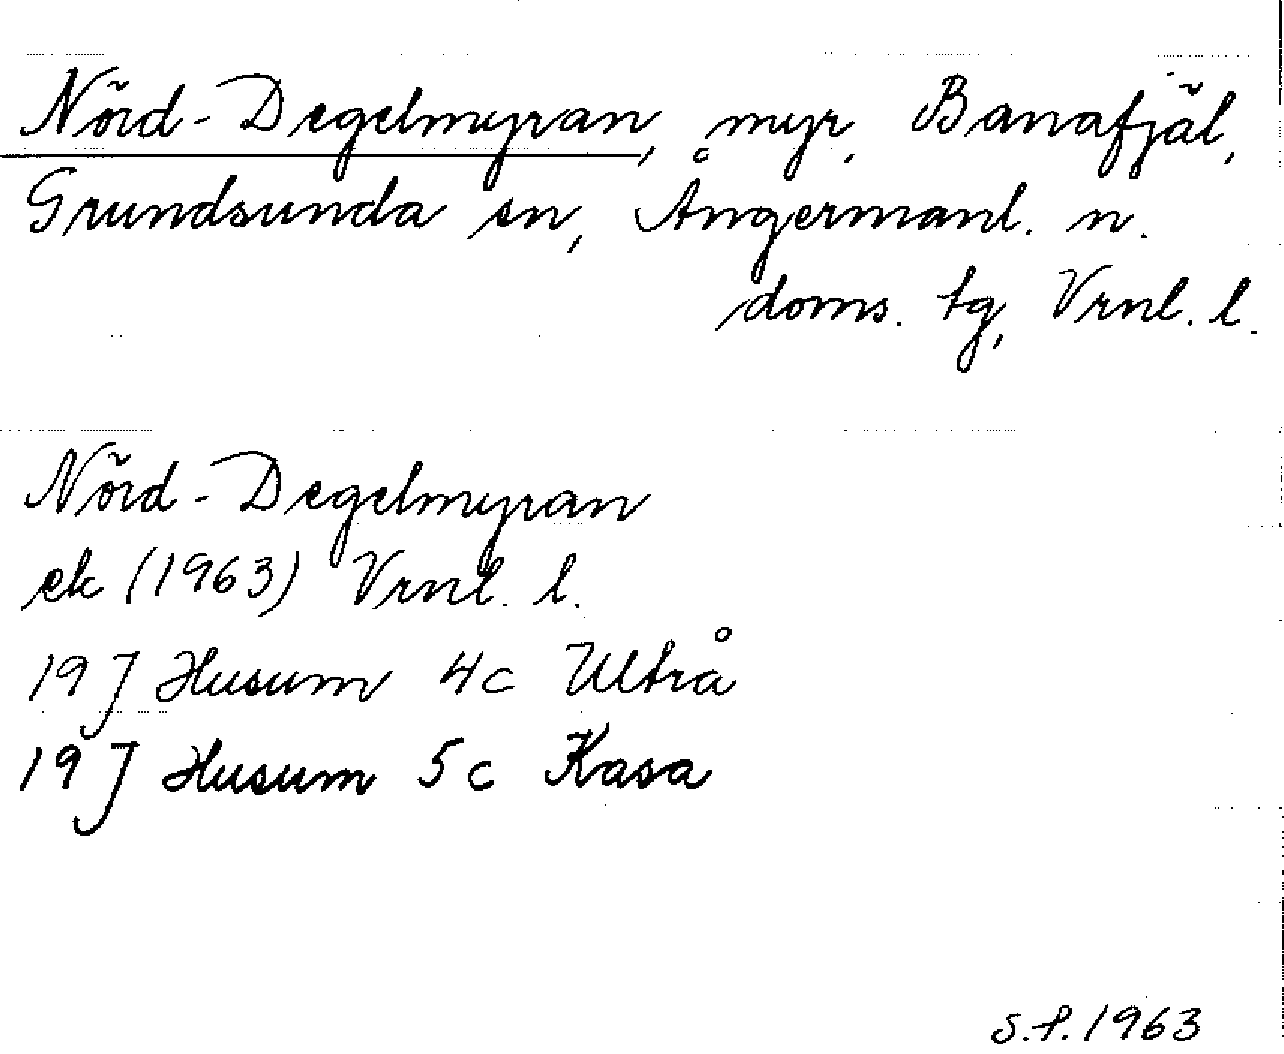 Nörd-Degelmyran, myr, Banafjäl,
Grundsunda sn, Ångermanl. n.
doms. tg, Vrnl. l.
Nörd-Degelmyran
ek (1963) Vrnl. l.
19 J Husum 4c Ultrå
19 J Husum 5c Kasa
S.f. 1963